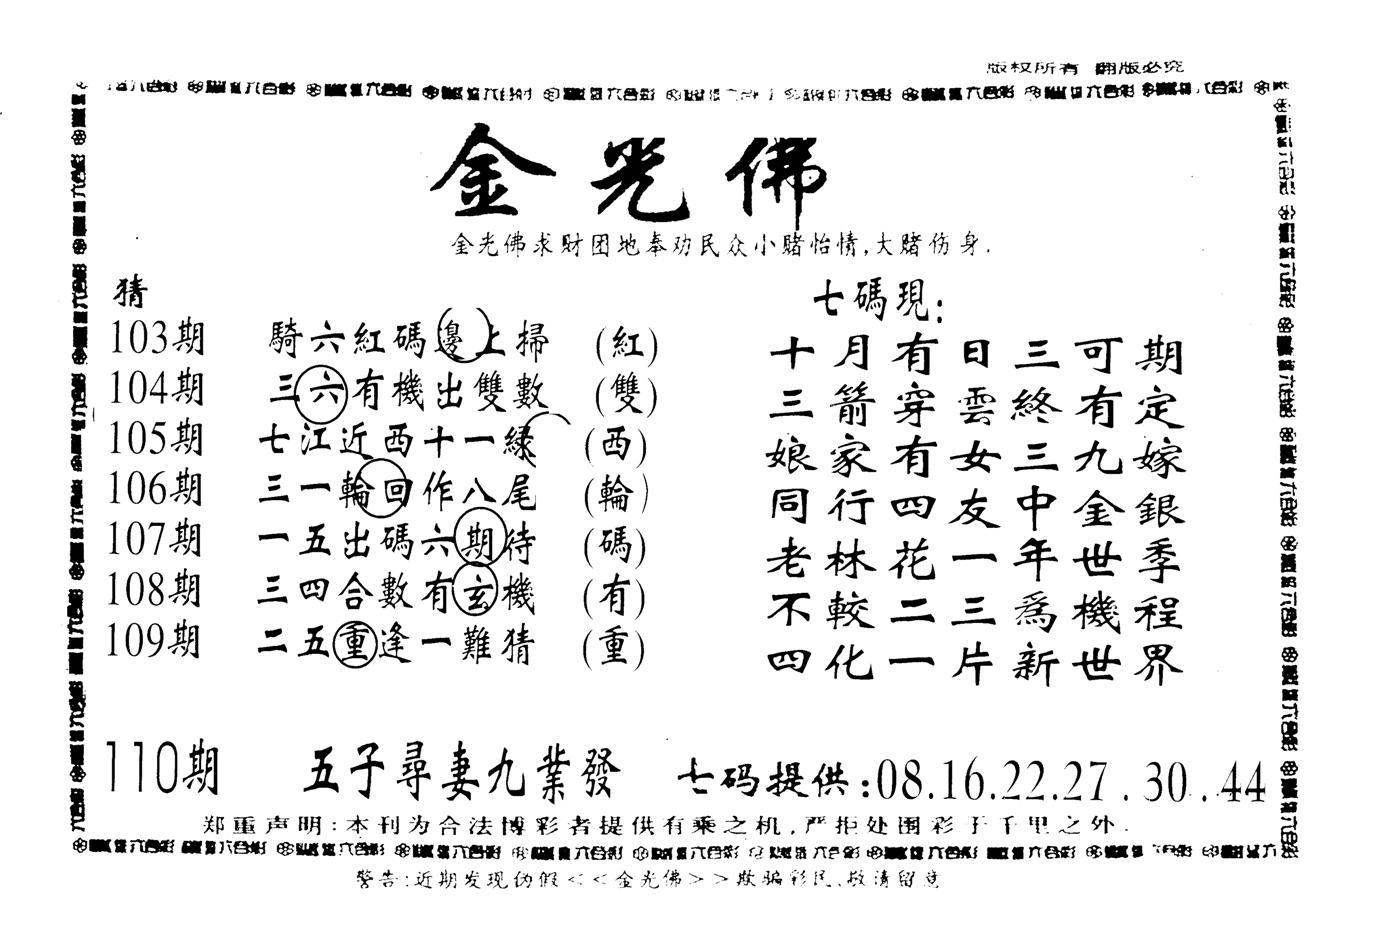 版权所有 翻版必究
金光佛
金光佛求财团地奉劝民众小赌怡情,大赌伤身.
猜
103期 騎六紅碼邊上掃 (紅)
104期 三六有機出雙數 (雙)
105期 七江近西十一緑 (西)
106期 三一輪回作八尾 (輪)
107期 一五出碼六期待 (碼)
108期 三四合數有玄機 (有)
109期 二五重逢一難猜 (重)
七碼現:
十月有日三可期
三箭穿雲終有定
娘家有女三九嫁
同行四友中金銀
老林花一年世季
不較二三爲機程
四化一片新世界
110期 五子尋妻九業發 七码提供:08.16.22.27.30..44
郑重声明:本刊为合法博彩者提供有乘之机,严拒处围彩于千里之外.
警告:近期发现伪假<<金光佛>>欺骗彩民,敬请留意